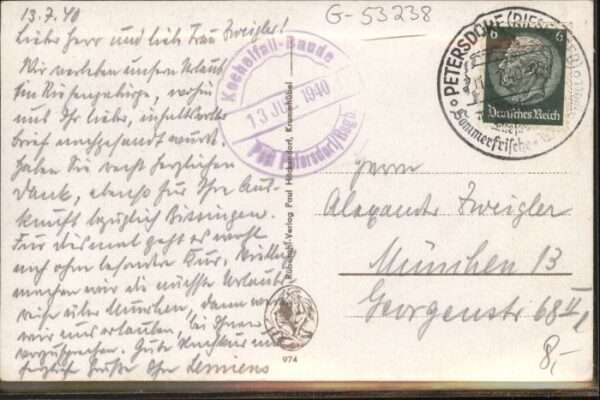 13.7.40
G-53238
Lieber Herr und liebe Frau Zweigler!
Wir verleben unsern Urlaub
im Riesengebirge, wohin
uns Ihr lieber, inhaltsvoller
Brief nachgesandt wurde.
Haben Sie recht herzlichen
Dank, ebenso für Ihre Aus-
kunft bezüglich Kissingen.
Für diesmal geht es wohl
noch ohne besondere Kur. Vielleicht
machen wir die nächste Urlaubs-
reise über München, dann
wir uns erlauben, bei Ihnen
vorzusprechen. Gute und
herzliche Grüße Ihre
Kochelfall-Baude
13. JUL. 1940
Post Petersdorf/Rsgb.
PETERSDORF (RIESENGEB)
Sommerfrische
6 6
Deutsches Reich
Rübezahl-Verlag Paul Höckendorf, Krummhübel
974
Herrn
Alexander Zweigler
München 13
Georgenstr 68 II
8,-